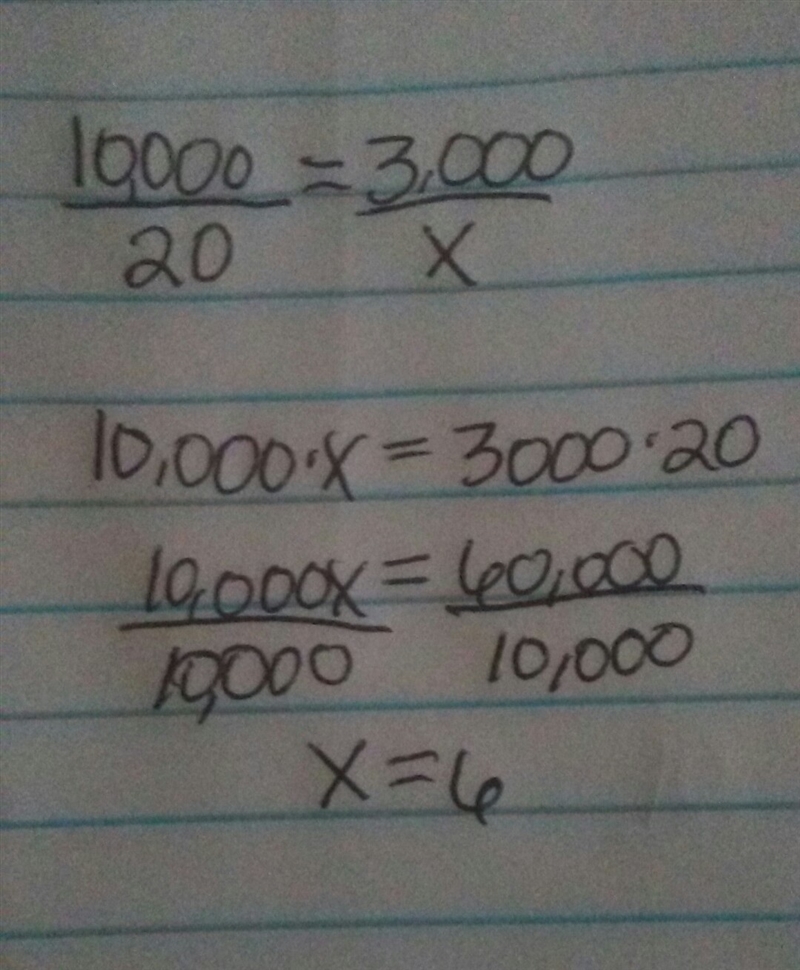 10,000 = 3,000
20 x
10,000·x = 3000·20
10,000x = 60,000
10,000 10,000
x = 6